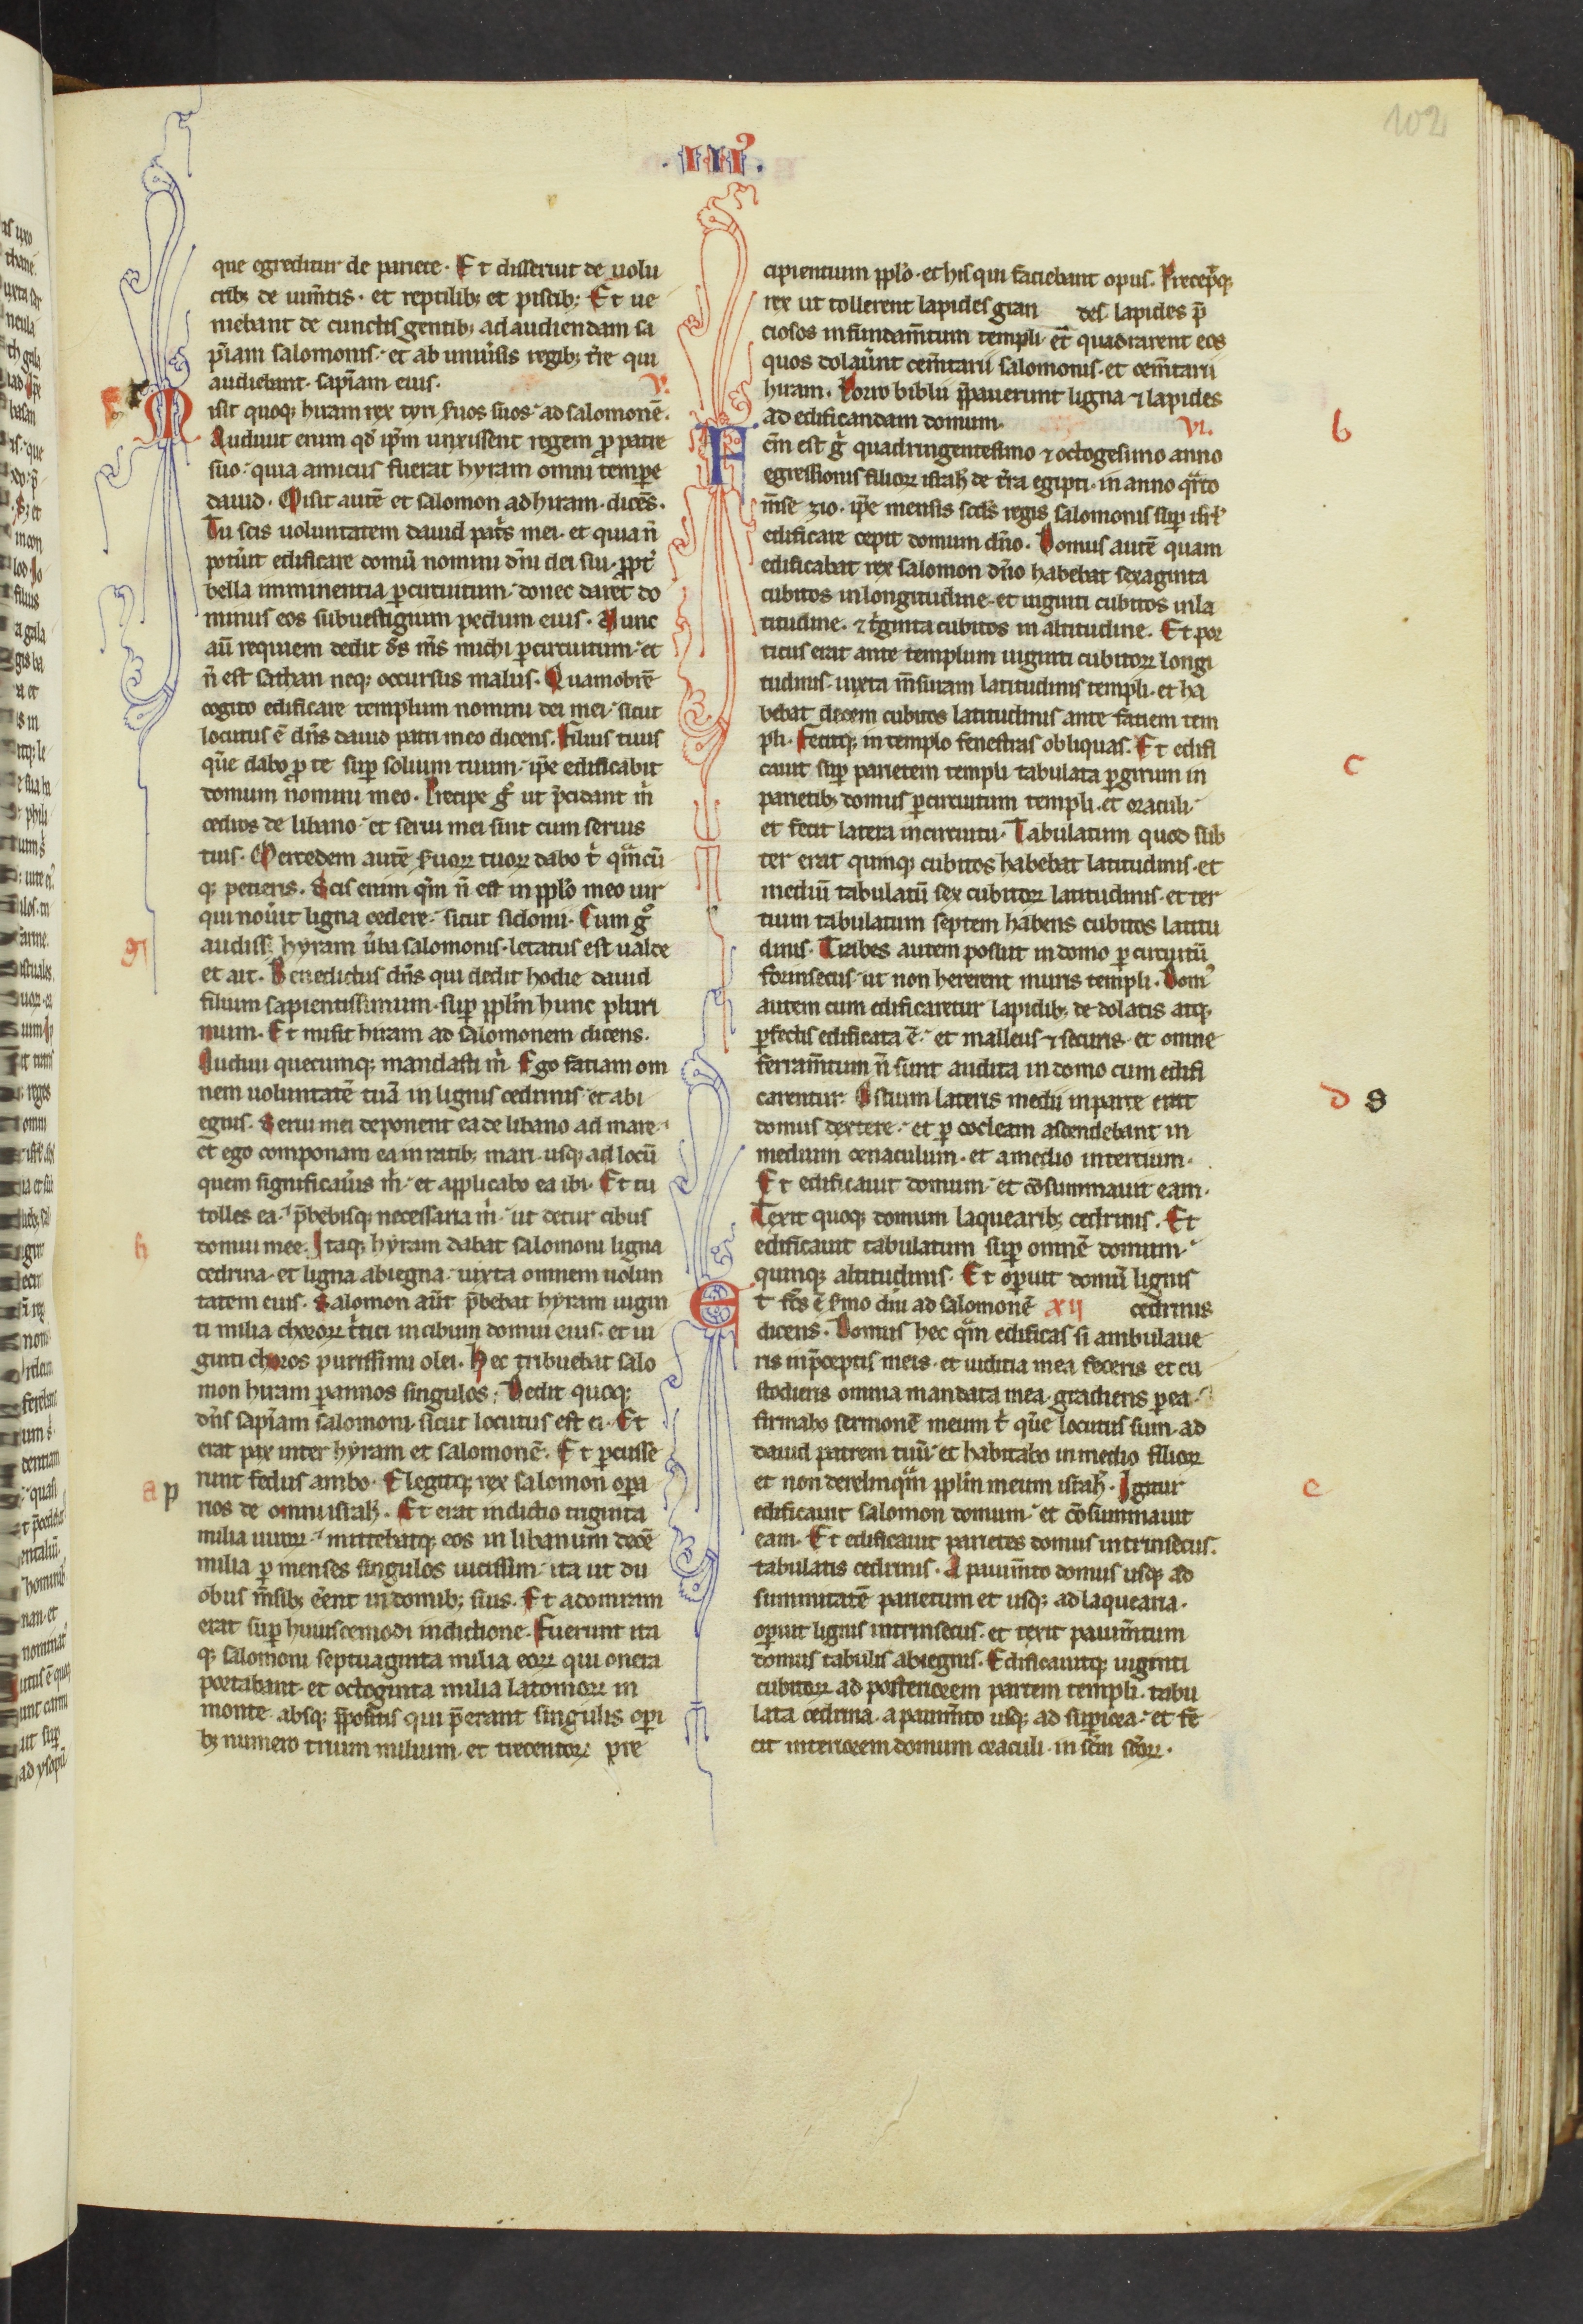 102
.III⁹.
que egreditur de pariete. Et disseruit de uolu
crib; de uim̄tis. et reptilib; et piscib; Et ue
niebant de cunctis gentib; ad audiendam sa
pīam salomonis. et ab uniūsis regib; tr̄e qui
audiebant sapīam eius. V.
Misit quoq; hiram rex tyri ẜuos suos ad salomonē.
Audiuit enim qd̄ ip̄m unxissent regem ꝓ patre
suo. quia amicus fuerat hyram omni temꝑe
dauid. Misit autē et salomon ad hiram. dicēs.
Tu scis uoluntatem dauid pat̄s mei. et quia n̄
potūit edificare domū nomini dn̄i dei sui. ꝓpt̄
bella imminentia ꝑ circuitum. donec daret do
minus eos sub uestigium pedum eius. Nunc
aū requiem dedit ds̄ m̄s michi ꝑ circuitum. et
n̄ est sathan neq; occursus malus. Quamobrē
cogito edificare templum nomini dei mei. sicut
locutus ē dn̄s dauid patri meo dicens. Filius tuus
q̄ue dabo ꝓ te suꝑ solium tuum. ip̄e edificabit
domum nomini meo. Precipe g̊ ut p̄cidant m̄
cedros de libano. et serui mei sint cum seruis
tuis. Mercedem autē ẜuoꝝ tuoꝝ dabo t̄ qm̄cū
q; petieris. Scis enim qm̄ n̄ est in pplo meo uir
qui nouit ligna cedere. sicut sidonii. Cum g̊
audiss; hyram ūba salomonis. letatus est ualde
et ait. Benedictus dn̄s qui dedit hodie dauid
filium sapientissimum. suꝑ pplm̄ hunc pluri
mum. Et misit hiram ad salomonem dicens.
Audiui quecumq; mandasti m̄. Ego faciam om
nem uoluntatē tuā in lignis cedrinis. et abi
egnis. Serui mei deponent ea de libano ad mare.
et ego componam ea in ratib; mari. usq; ad locū
quem significaūis m̄. et applicabo ea ibi. Et tu
tolles ea. p̄bebisq; necessaria m̄. ut detur cibus
domui mee. Itaq; hyram dabat salomoni ligna
cedrina. et ligna abiegna. iuxta omnem uolun
tatem eius. Salomon aūt p̄bebat hyram uigin
ti milia choroꝝ t̄tici in cibum domui eius. et ui
ginti choros purissimi olei. Hec tribuebat salo
mon hiram ꝑ annos singulos. Dedit quoq;
dn̄s sapīam salomoni. sicut locutus est ei. Et
erat pax inter hyram et salomonē. Et ꝑcusse
runt fedus ambo. Elegitq; rex salomon opa
rios de omni israhl̄. Et erat indictio triginta
milia uiroꝝ. mittebatq; eos in libanum decē
milia ꝑ menses singulos uicissim. ita ut du
obus m̄sib; eēnt in domib; suis. Et adoniram
erat suꝑ huiuscemodi indictione. Fuerunt ita
q; salomoni septuaginta milia eoꝝ qui onera
portabant. et octoginta milia latomoꝝ in
monte. absq; p̄positis qui p̄erant singulis opi
b; numero trium milium. et trecentoꝝ pre
cipientium pplo. et his qui faciebant opus. Precepitq;
rex ut tollerent lapides gran des. lapides p̄
ciosos in fundam̄tum templi. et quadrarent eos
quos dolaūnt cem̄tarii salomonis. et cem̄tarii
hiram. Porro biblii p̄pauerunt ligna ⁊ lapides
ad edificandam domum. VI.
Fcm̄ est g̊ quadringentesimo ⁊ octogesimo anno
egressionis filioꝝ israhl̄ de tr̄a egipti. in anno q̄rto
m̄se zio. ip̄e mensis scd̄s regis salomonis suꝑ isrl̄
edificare cepit domum dn̄o. Domus autē quam
edificabat rex salomon dn̄o habebat sexaginta
cubitos in longitudine. et uiginti cubitos in la
titudine. ⁊ t̄ginta cubitos in altitudine. Et por
ticus erat ante templum uiginti cubitoꝝ longi
tudinis. iuxta m̄suram latitudinis templi. et ha
bebat decem cubitos latitudinis ante faciem tem
pli. Fecitq; in templo fenestras obliquas. Et edifi
cauit suꝑ parietem templi tabulata ꝑ girum in
parietib; domus ꝑ circuitum templi. et oraculi.
et fecit latera in circuitu. Tabulatum quod sub
ter erat quinq; cubitos habebat latitudinis. et
mediū tabulatū sex cubitoꝝ latitudinis. et ter
tium tabulatum septem habens cubitos latitu
dinis. Trabes autem posuit in domo ꝑ circuitū
forinsecus. ut non hererent muris templi. Dom⁹
autem cum edificaretur lapidib; de dolatis atq;
ꝑfectis edificata ē. et malleus ⁊ securis. et omne
ferram̄tum n̄ sunt audita in domo cum edifi
carentur. Ostium lateris medii in parte erat
domus dextere. et ꝑ cocleam ascendebant in
medium cenaculum. et a medio in tercium.
Et edificauit domum. et cōsummauit eam.
Texit quoq; domum laquearib; cedrinis. Et
edificauit tabulatum suꝑ omnē domum.
quinq; altitudinis. Et opuit domū lignis
Et fc̄s ē ẜmo dn̄i ad salomonē XII cedrinis
dicens. Domus hec qm̄ edificas si ambulaue
ris in p̄ceptis meis. et iudicia mea feceris et cu
stodieris omnia mandata mea. gradiens ꝑ ea.
firmabo sermonē meum t̄ q̄ue locutus sum. ad
dauid patrem tuū. et habitabo in medio filioꝝ
et non derelinqm̄ pplm̄ meum israhl̄. Igitur
edificauit salomon domum. et cōsummauit
eam. Et edificauit parietes domus intrinsecus.
tabulatis cedrinis. A pauim̄to domus usq; ad
summitatē parietum et usq; ad laquearia.
opuit lignis intrinsecus. et texit pauim̄tum
domus tabulis abiegnis. Edificauitq; uiginti
cubitoꝝ ad posteriorem partem templi. tabu
lata cedrina. a pauim̄to usq; ad supiora. et fe
cit interiorem domum oraculi. in scm̄ scōꝝ.
g
h
a p
b
c
d
e